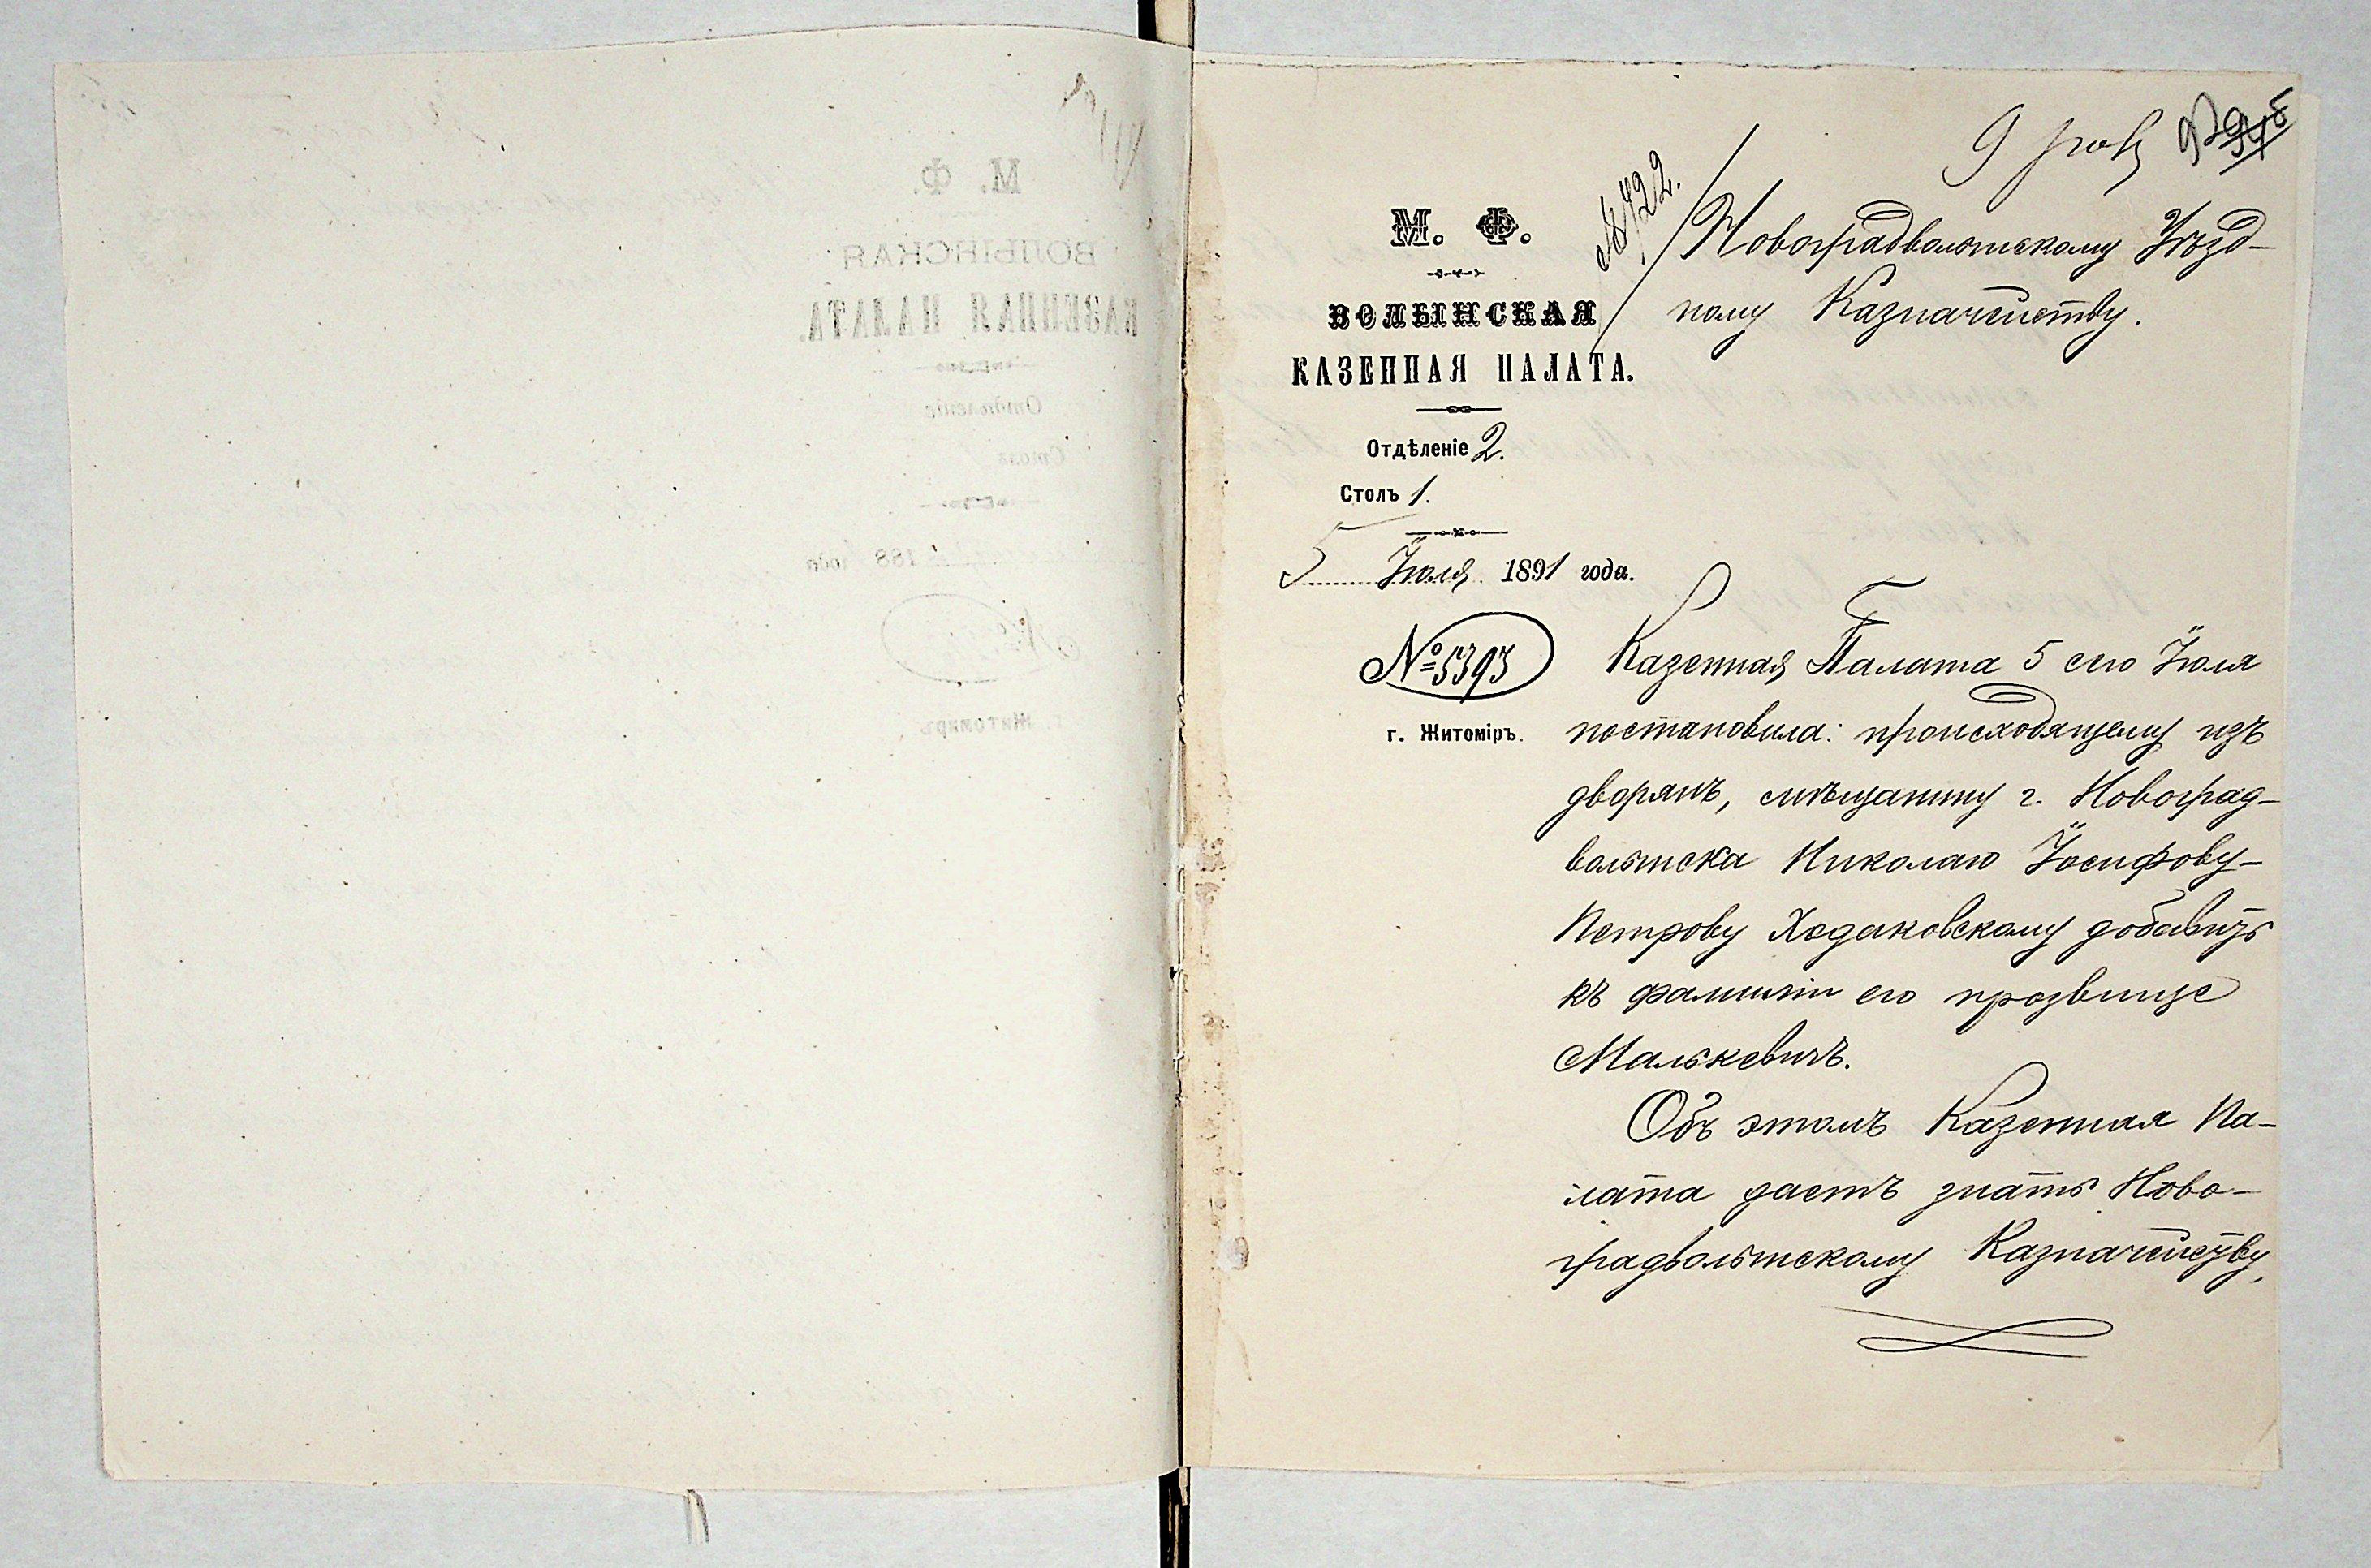 М. Ф.
ВОЛЫНСКАЯ
КАЗЕННАЯ ПАЛАТА.
Отдѣленіе 2.
Столъ 1.
5 Іюля 1891 года.
№ 5393
г. Житоміръ.
№ 422.
Новоградволынскому Уѣзд-
ному Казначейству.
Казенная Палата 5 сего Іюля
постановила: происходящему изъ
дворянъ, мѣщанину г. Новоград-
волынска Николаю Іосифову-
Петрову Ходаковскому добавить
къ фамиліи его прозвище
Малькевичъ.
Объ этомъ Казенная Па-
лата даетъ знать Ново-
градволынскому Казначейству,
М. Ф.
ВОЛЫНСКАЯ
КАЗЕННАЯ ПАЛАТА.
Отдѣленіе
Столъ
188 года
№
г. Житомиръ.